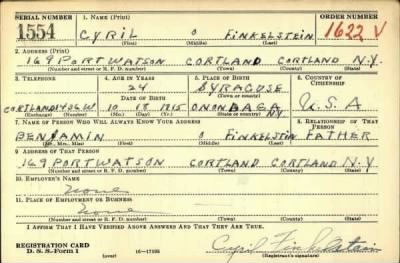 SERIAL NUMBER 1. NAME (Print) ORDER NUMBER
1554 CYRIL O FINKELSTEIN 1622 V
(First) (Middle) (Last)
2. ADDRESS (Print)
169 PORT WATSON CORTLAND CORTLAND N.Y.
(Number and street or R. F. D. number) (Town) (County) (State)
3. TELEPHONE 4. AGE IN YEARS 5. PLACE OF BIRTH 6. COUNTRY OF CITIZENSHIP
24 SYRACUSE
DATE OF BIRTH (Town or county)
CORTLAND 1436W 10 18 1915 ONONDAGA N.Y. U.S.A
(Exchange) (Number) (Mo.) (Day) (Yr.) (State or country)
7. NAME OF PERSON WHO WILL ALWAYS KNOW YOUR ADDRESS 8. RELATIONSHIP OF THAT PERSON
BENJAMIN O FINKELSTEIN FATHER
(Mr., Mrs., Miss) (First) (Middle) (Last)
9. ADDRESS OF THAT PERSON
169 PORT WATSON CORTLAND CORTLAND N.Y
(Number and street or R. F. D. number) (Town) (County) (State)
10. EMPLOYER'S NAME
None
11. PLACE OF EMPLOYMENT OR BUSINESS
None
(Number and street or R. F. D. number) (Town) (County) (State)
I AFFIRM THAT I HAVE VERIFIED ABOVE ANSWERS AND THAT THEY ARE TRUE.
REGISTRATION CARD
D. S. S. Form 1 (over) 16—17105 Cyril Finkelstein
(Registrant's signature)